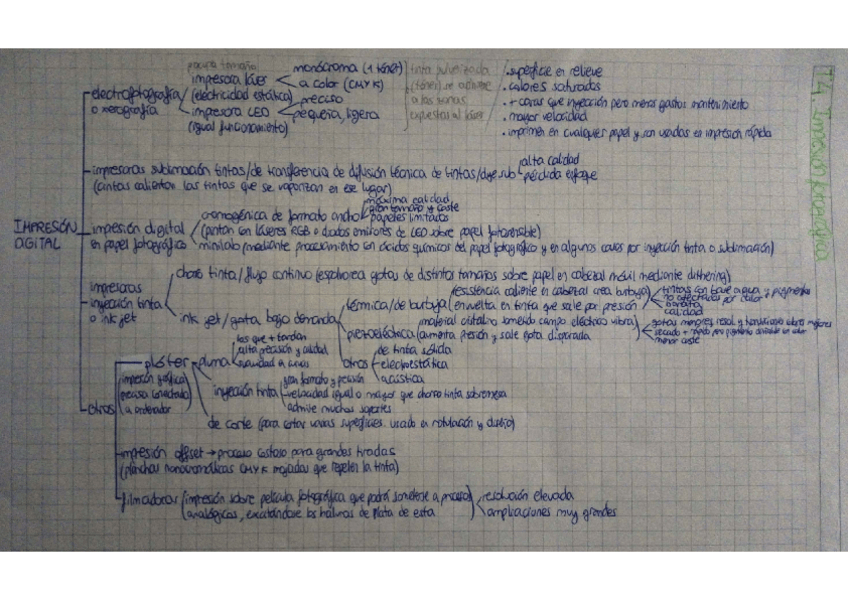 T4. Impresión fotográfica
IMPRESIÓN DIGITAL
electrofotografía o xerografía
poco tamaño
impresora láser
(electricidad estática)
monócroma (1 tóner)
a color (CMYK)
impresora LED
(igual funcionamiento)
preciso
pequeña, ligera
tinta pulverizada
(tóner) se adhiere
a las zonas
expuestas al láser
• superficie en relieve
• colores saturados
• + caras que inyección pero menos gastos mantenimiento
• mayor velocidad
• imprimen en cualquier papel y son usadas en impresión rápida
impresoras sublimación tintas/de transferencia de difusión técnica de tintas/dye sub
(cintas calientan las tintas que se vaporizan en ese lugar)
alta calidad
pérdida enfoque
impresión digital
en papel fotográfico
cromogénica de formato ancho
máxima calidad
gran tamaño y coste
papeles limitados
(pintan con láseres RGB o diodos emisores de LED sobre papel fotosensible)
minilab (mediante procesamiento con ácidos químicos del papel fotográfico y en algunos casos por inyección tinta o sublimación)
impresoras
inyección tinta
o ink jet
chorro tinta/flujo continuo (espolvorea gotas de distintos tamaños sobre papel en cabezal móvil mediante dithering)
ink jet/gota bajo demanda
térmica/de burbuja
(resistencia caliente en cabezal crea burbuja
envuelta en tinta que sale por presión)
tintas con base agua y pigmentos
no afectados por calor
barata
calidad
piezoeléctrica
(material cristalino sometido campo eléctrico vibra,
aumenta presión y sale gota disparada)
menor coste
otros
de tinta sólida
electroestática
acústica
otros
plóter
(impresión gráfica
precisa conectada
a ordenador)
pluma
las que + tardan
alta precisión y calidad
inyección tinta
gran formato y precisión
velocidad igual o mayor que chorro tinta sobremesa
admite muchos soportes
de corte (para cortar varias superficies. usado en rotulación y diseño)
impresión offset → proceso costoso para grandes tiradas
(planchas monocromáticas CMYK mojadas que repelen la tinta)
filmadoras (impresión sobre película fotográfica que podrá someterse a procesos
analógicos, excitándose los haluros de plata de esta)
resolución elevada
ampliaciones muy grandes